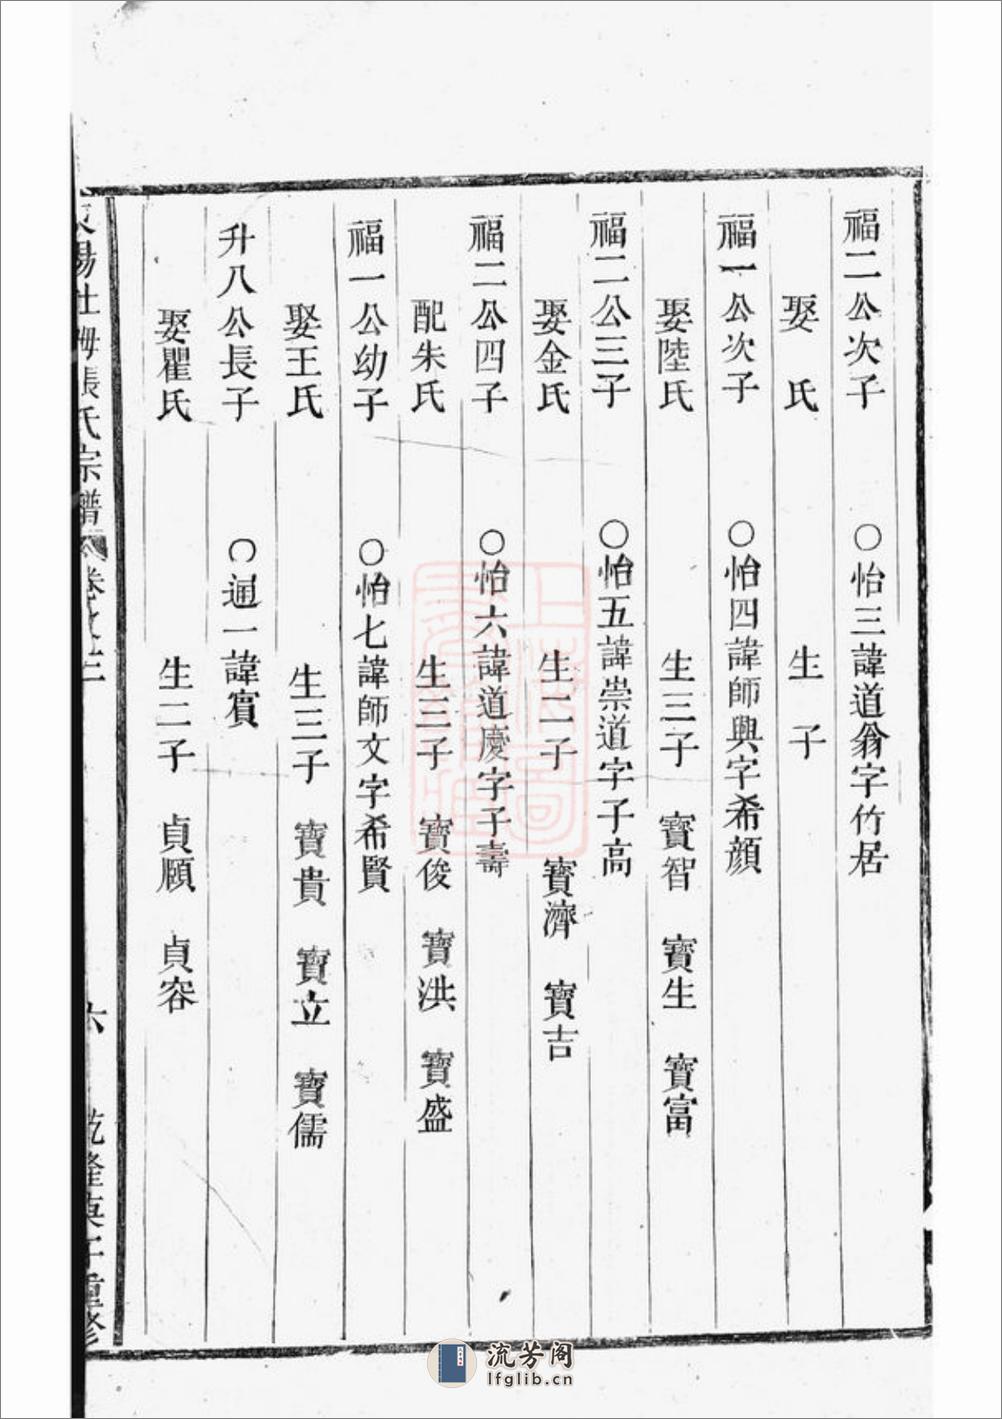 福二公次子 〇怡三諱道翁字竹居
娶 氏 生 子
福一公次子 〇怡四諱師興字希顔
娶陸氏 生三子 寶智 寶生 寶富
福二公三子 〇怡五諱崇道字子高
娶金氏 生二子 寶濟 寶吉
福二公四子 〇怡六諱道慶字子壽
配朱氏 生三子 寶俊 寶洪 寶盛
福一公幼子 〇怡七諱師文字希賢
娶王氏 生三子 寶貴 寶立 寶儒
升八公長子 〇通一諱賔
娶瞿氏 生二子 貞願 貞容
張氏宗譜 卷之二 六 乾隆庚午重修
流芳阁
lfglib.cn